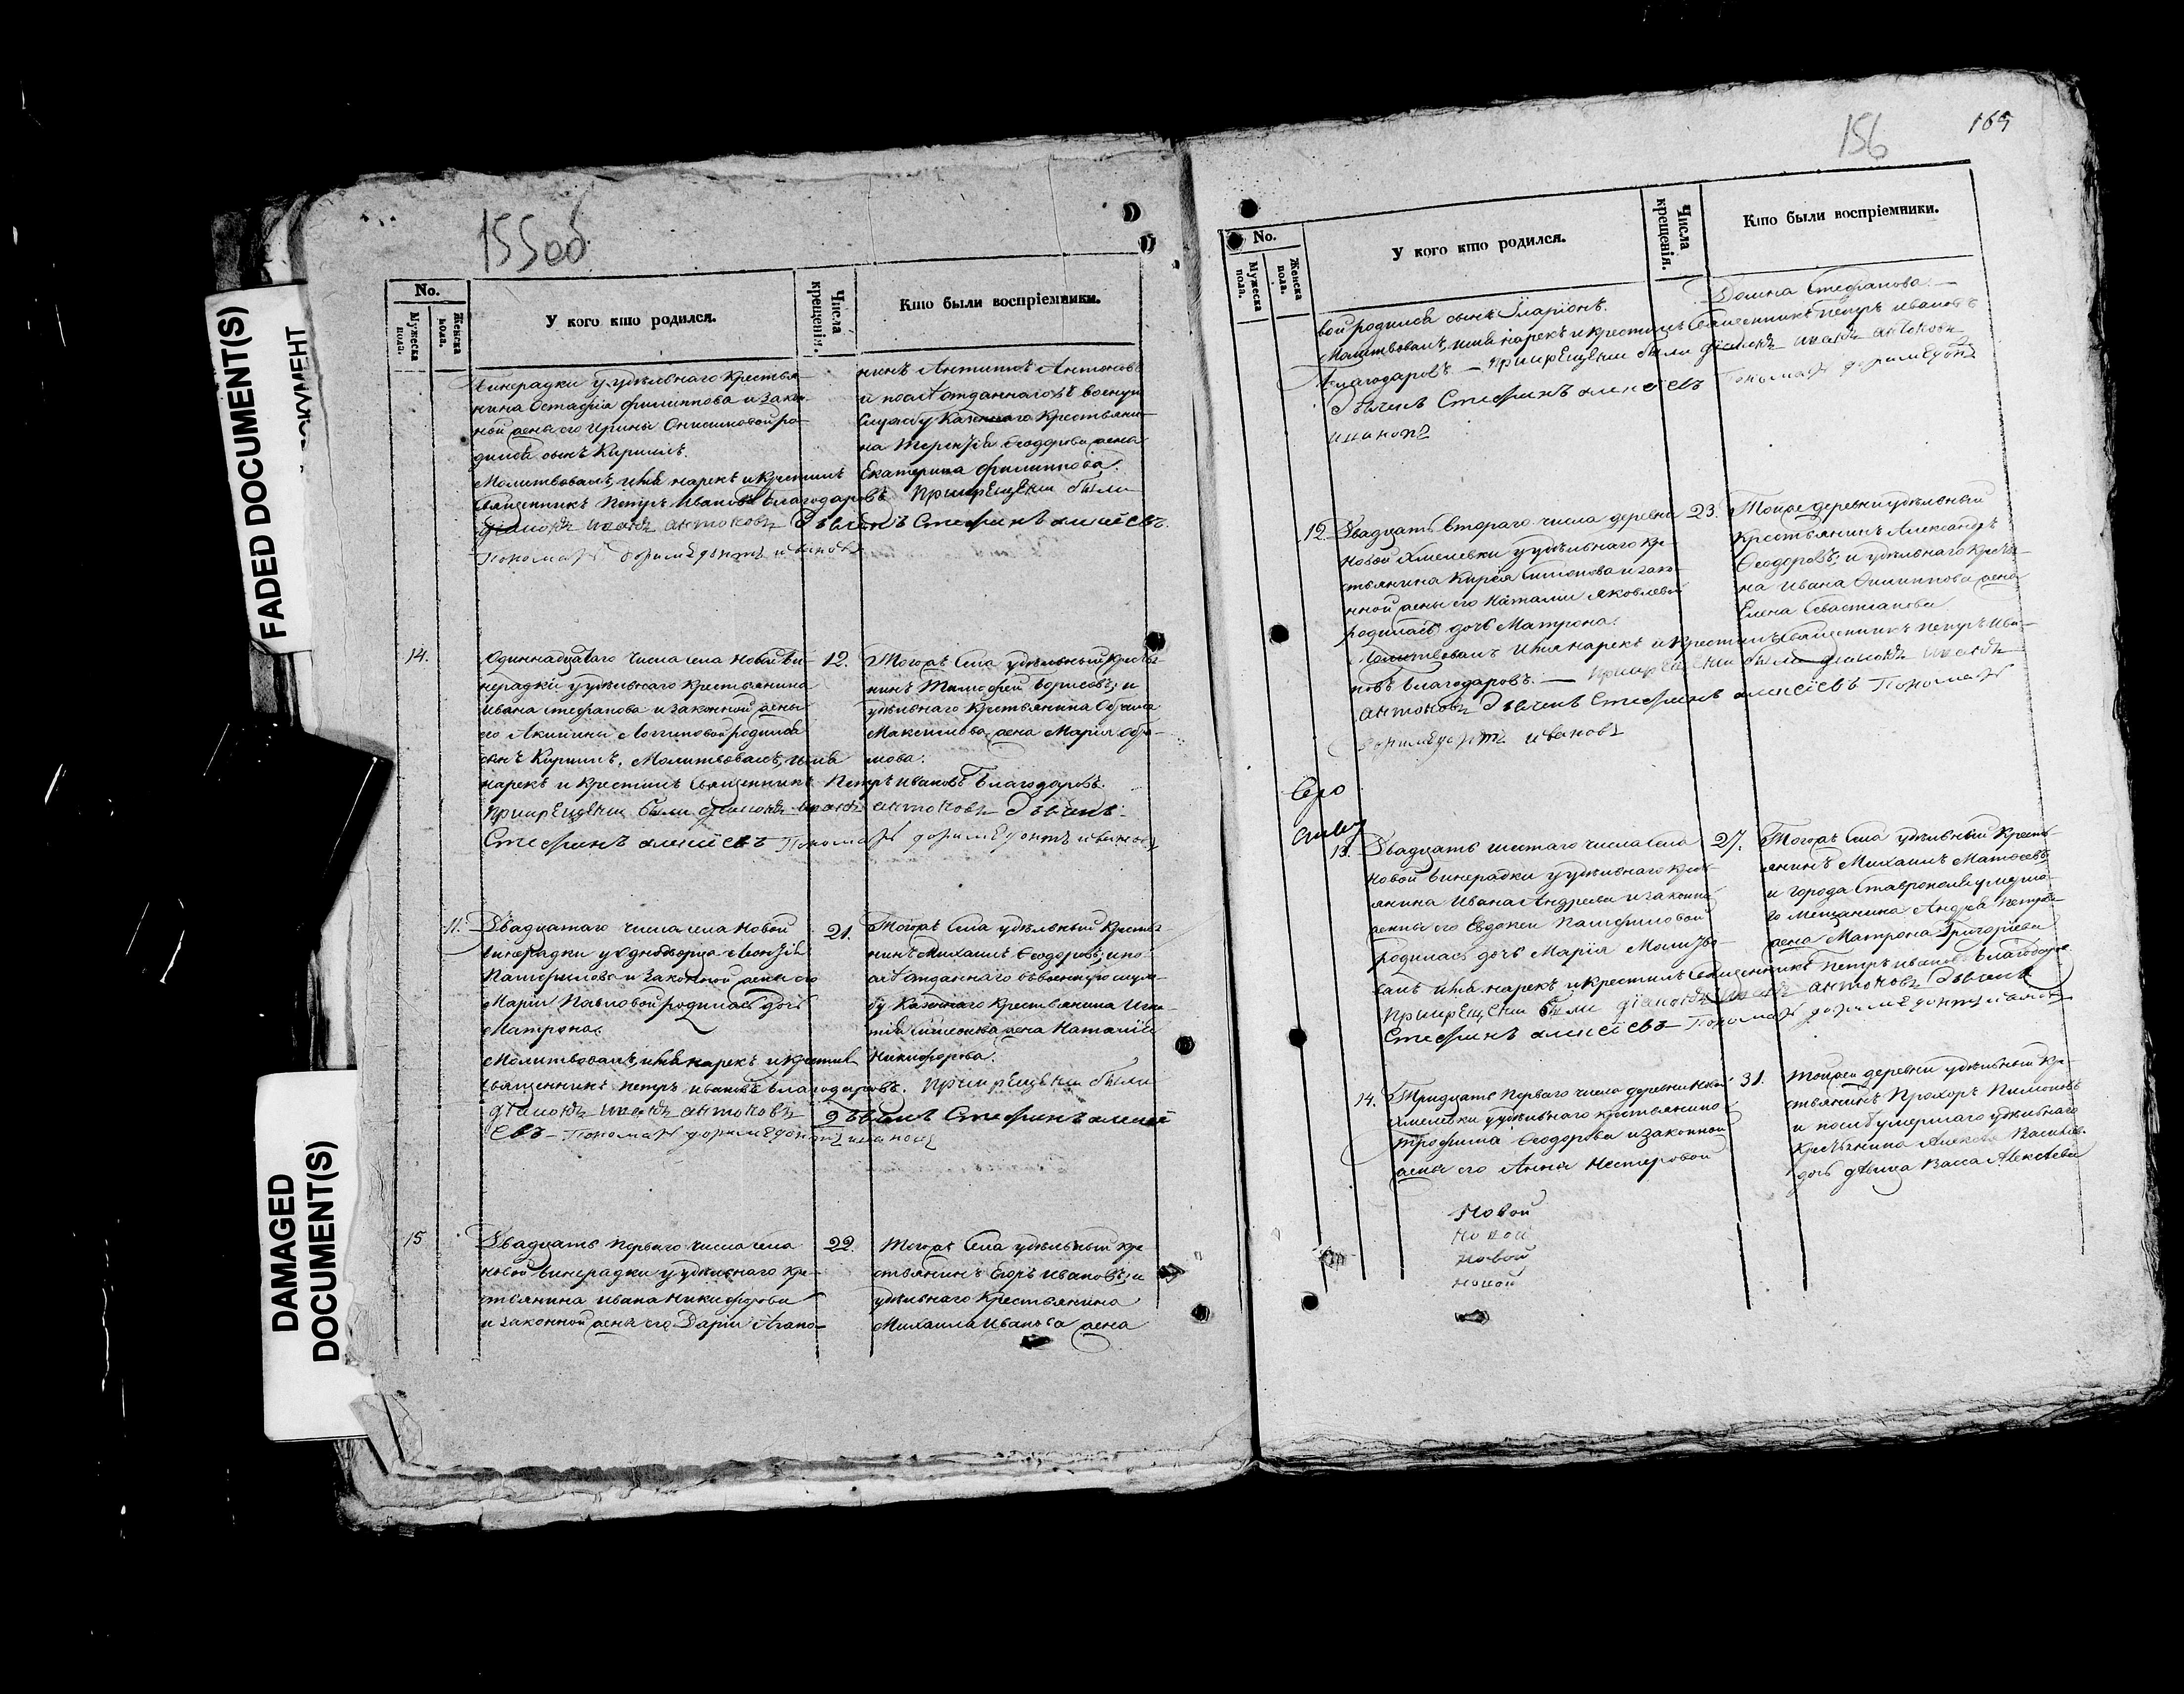 FADED DOCUMENT(S)
ДОКУМЕНТ
DAMAGED
DOCUMENT(S)
155об
No.
Мужеска пола.
Женска пола.
У кого кто родился.
Числа крещенія.
Кто были воспріемники.
Винерадки у удѣльнаго крестья-
нина Остафія Филиппова и закон-
ной жены его Ирины Онисимовой ро-
дился сынъ Кириллъ.
Молитвовалъ, имя нарекъ и крестилъ
Священникъ Петръ Ивановъ Благодаровъ. При крещеніи были
діаконъ Иванъ Антоновъ Дьячекъ Стефанъ Алексѣевъ.
Пономарь Доримедонтъ Ивановъ
нинъ Антипъ Антоновъ
и послѣ отданнаго въ военную
службу казеннаго крестьяни-
на Терентія Ѳеодорова жена
Екатерина Филиппова.
14.
Одиннадцатаго числа села Новой Ви-
нерадки у удѣльнаго крестьянина
Ивана Стефанова и законной жены
его Акилины Логиновой родился
сынъ Кириллъ. Молитвовалъ, имя
нарекъ и крестилъ Священникъ Петръ Ивановъ Благодаровъ.
При крещеніи были діаконъ Иванъ Антоновъ Дьячекъ
Стефанъ Алексѣевъ Пономарь Доримедонтъ Ивановъ
12.
Тогожъ села удѣльный крестья-
нинъ Тимофей Борисовъ; и
удѣльнаго крестьянина
Максимова жена Марія
мова.
11.
Двадцатаго числа села Новой
Винерадки у однодворца Леонтія
Панфилова и законной жены его
Маріи Павловой родилась дочь
Матрона.
Молитвовалъ, имя нарекъ и крестилъ
Священникъ Петръ Ивановъ Благодаровъ. При крещеніи были
діаконъ Иванъ Антоновъ Дьячекъ Стефанъ Алексѣ-
евъ – Пономарь Доримедонтъ Ивановъ
21.
Тогожъ села удѣльный крестья-
нинъ Михаилъ Ѳеодоровъ; и по-
слѣ отданнаго въ военную служ-
бу казеннаго крестьянина Игна-
тія Симеонова жена Наталія
Никифорова.
15
Двадцать перваго числа села
Новой Винерадки у удѣльнаго кре-
стьянина Ивана Никифорова
и законной жены его Даріи Агапо-
22.
Тогожъ села удѣльный кре-
стьянинъ Егоръ Ивановъ; и
удѣльнаго крестьянина
Михаила Иванова жена
156
165
No.
Мужеска пола.
Женска пола.
У кого кто родился.
Числа крещенія.
Кто были воспріемники.
вой родился сынъ Иларіонъ.
Молитвовалъ, имя нарекъ и крестилъ Священникъ Петръ Ивановъ
Благодаровъ. – При крещеніи были діаконъ Иванъ Антоновъ
Дьячекъ Стефанъ Алексѣевъ Пономарь Доримедонтъ
Ивановъ
Домна Стефанова. –
12.
Двадцать втораго числа деревни
Новой Хмелевки у удѣльнаго кре-
стьянина Кирса Симонова и зако-
нной жены его Наталіи Яковлевой
родилась дочь Матрона.
Молитвовалъ имя нарекъ и крестилъ Священникъ Петръ Ива-
новъ Благодаровъ. – При крещеніи были діаконъ Иванъ
Антоновъ Дьячекъ Стефанъ Алексѣевъ Пономарь
Доримедонтъ Ивановъ
23.
Тойже деревни удѣльный
крестьянинъ Александръ
Ѳеодоровъ; и удѣльнаго крестья-
на Ивана Филиппова жена
Елена Севастіанова.
13.
Двадцать шестаго числа села
Новой Винерадки у удѣльнаго кресть-
янина Ивана Андреева и законной
жены его Евдокеи Панфиловой
родилась дочь Марія Молитво-
валъ имя нарекъ и крестилъ Священникъ Петръ Ивановъ Благодаровъ
При крещеніи были діаконъ Иванъ Антоновъ Дьячекъ
Стефанъ Алексѣевъ – Пономарь Доримедонтъ Ивановъ
27.
Тогожъ села удѣльный кресть-
янинъ Михаилъ Матвѣевъ
и города Ставрополя умерша-
го мещанина Андрея Петрова
жена Матрона Григоріева
14.
Тридцать перваго числа деревни Новой
Хмелевки у удѣльнаго крестьянина
Трофима Ѳеодорова и законной
жены его Анны Нестеровой
31.
Тойжеи деревни удѣльный кре-
стьянинъ Прохоръ Пимоновъ
и послѣ умершаго удѣльнаго
крестьянина Алексея Васильева
дочь дѣвица Васса Алексѣева
Новой
Новой
Новой
Новой